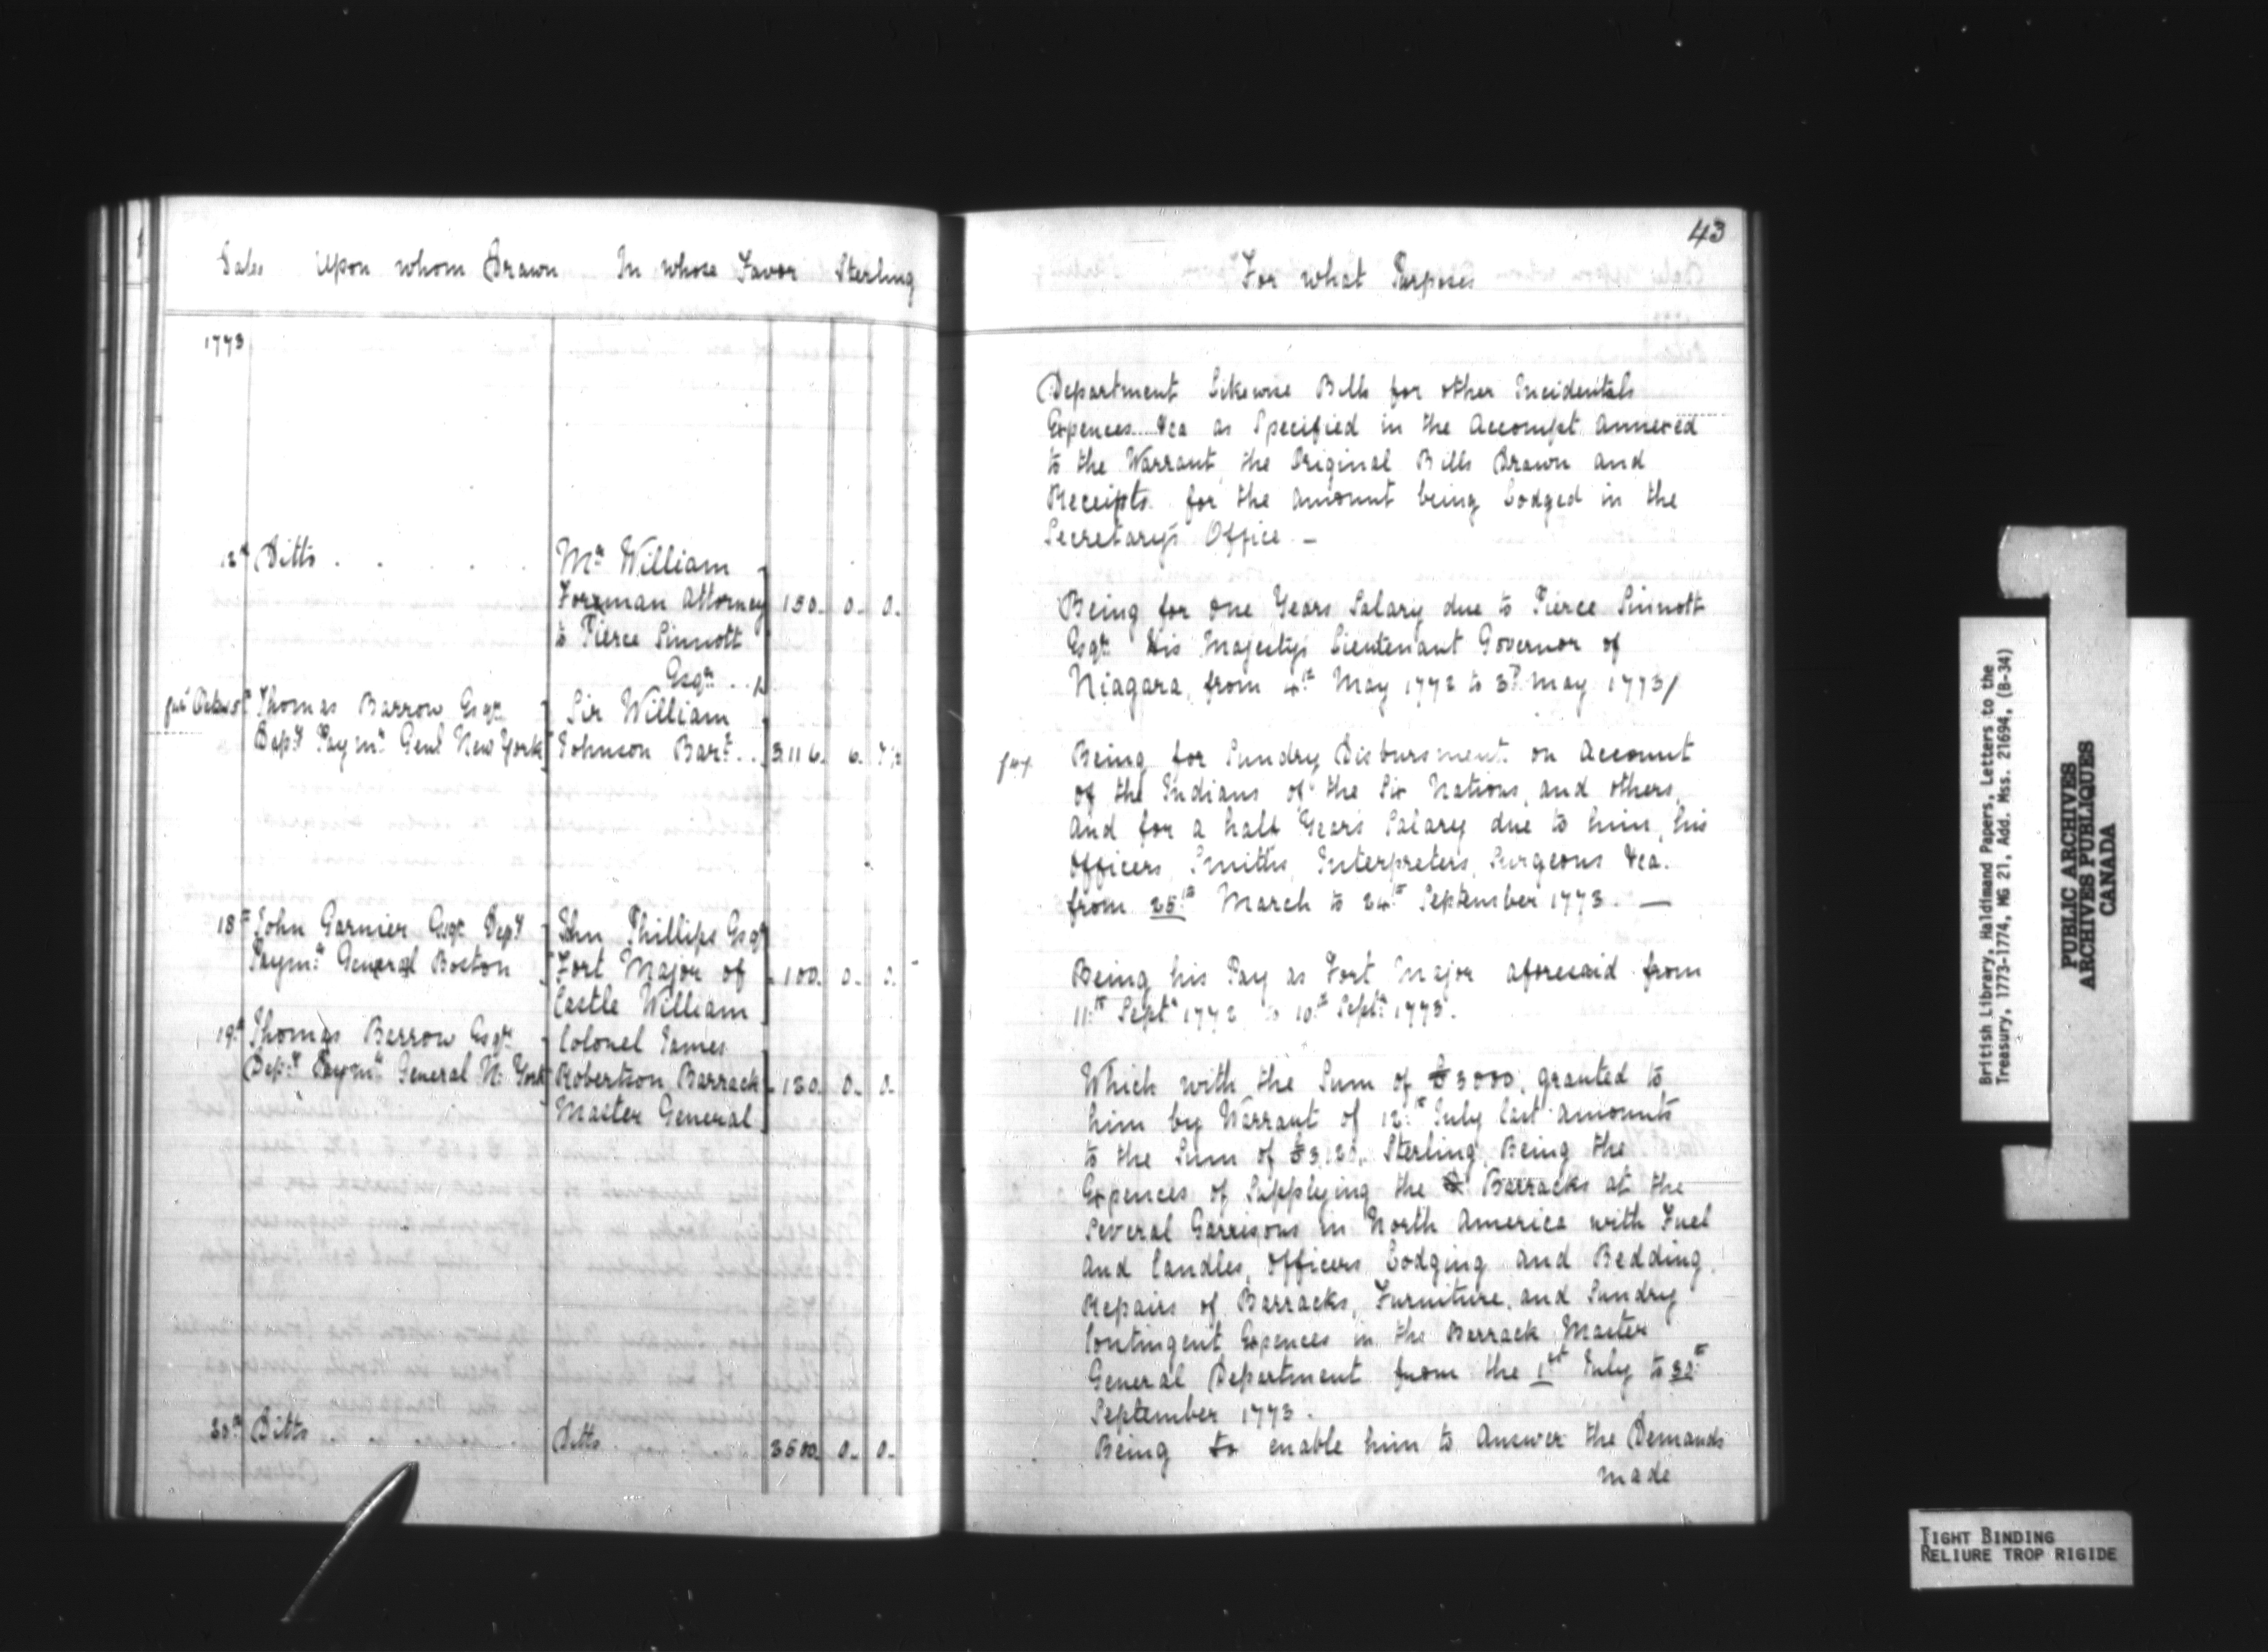 Dates Upon whom Drawn In whose Favor Sterling
1773
12th Ditto . . . .
Mr. William
Foreman Attorney 150. 0. 0.
to Pierce Sinnott
Esqr ..
Octr 5th Thomas Barrow Esqr
Depy Paymr Genl New York
Sir William
Johnson Bart .. 3116. 6. 7½
18th John Garnier Esqr Depy
Paymr General Boston
John Phillips Esqr
Fort Major of 100. 0. 0.
Castle William
19th Thomas Barrow Esqr
Depy Paymr General N: York
Colonel James
Robertson, Barrack 130. 0. 0.
Master General
30th Ditto Ditto 3500. 0. 0.
43
For what Purposes
Department Likewise Bills for other Incidentals
Expences &ca as Specified in the Accompt annexed
to the Warrant, the Original Bills Drawn and
Receipts for the amount being Lodged in the
Secretary's Office —
Being for one Years Salary due to Pierce Sinnott
Esqr His Majesty's Lieutenant Governor of
Niagara, from 4th May 1772 to 3d May 1773/
Being for Sundry Disbursment on Account
of the Indians of the Six Nations, and others,
and for a half Year's Salary due to him, his
Officers, Smiths, Interpreters, Surgeons &ca.
from 25th March to 24th September 1773. —
Being his Pay as Fort Major aforesaid from
11th Septr 1772 to 10th Septr 1773.
Which with the Sum of £3000, granted to
him by Warrant of 12th July last amounts
to the Sum of £3,130. Sterling, Being the
Expences of Supplying the Barracks at the
Several Garrisons in North America with Fuel
and Candles, Officers Lodging and Bedding,
Repairs of Barracks, Furniture, and Sundry
Contingent Expences in the Barrack Master
General Department from the 1st July to 30th
September 1773.
Being to enable him to Answer the Demands
made
British Library, Haldimand Papers, Letters to the
Treasury, 1773-1774, MG 21, Add. Mss. 21694, (B-34)
PUBLIC ARCHIVES
ARCHIVES PUBLIQUES
CANADA
TIGHT BINDING
RELIURE TROP RIGIDE